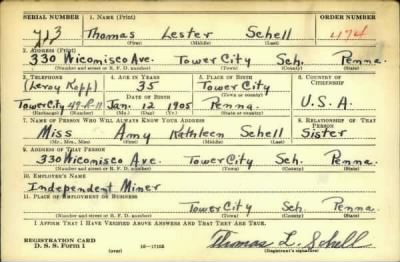 SERIAL NUMBER 1. NAME (Print) ORDER NUMBER
713 Thomas Lester Schell 474
(First) (Middle) (Last)
2. ADDRESS (Print)
330 Wiconisco Ave. Tower City Sch. Penna.
(Number and street or R. F. D. number) (Town) (County) (State)
3. TELEPHONE 4. AGE IN YEARS 5. PLACE OF BIRTH 6. COUNTRY OF CITIZENSHIP
(Leroy Kopp) 35 Tower City
DATE OF BIRTH (Town or county)
Tower City 49-R-11 Jan. 12 1905 Penna. U.S.A.
(Exchange) (Number) (Mo.) (Day) (Yr.) (State or country)
7. NAME OF PERSON WHO WILL ALWAYS KNOW YOUR ADDRESS 8. RELATIONSHIP OF THAT PERSON
Miss Amy Kathleen Schell Sister
(Mr., Mrs., Miss) (First) (Middle) (Last)
9. ADDRESS OF THAT PERSON
330 Wiconisco Ave. Tower City Sch. Penna.
(Number and street or R. F. D. number) (Town) (County) (State)
10. EMPLOYER'S NAME
Independent Miner
11. PLACE OF EMPLOYMENT OR BUSINESS
Tower City Sch. Penna.
(Number and street or R. F. D. number) (Town) (County) (State)
I AFFIRM THAT I HAVE VERIFIED ABOVE ANSWERS AND THAT THEY ARE TRUE.
REGISTRATION CARD
D. S. S. Form 1 (over) Thomas L. Schell